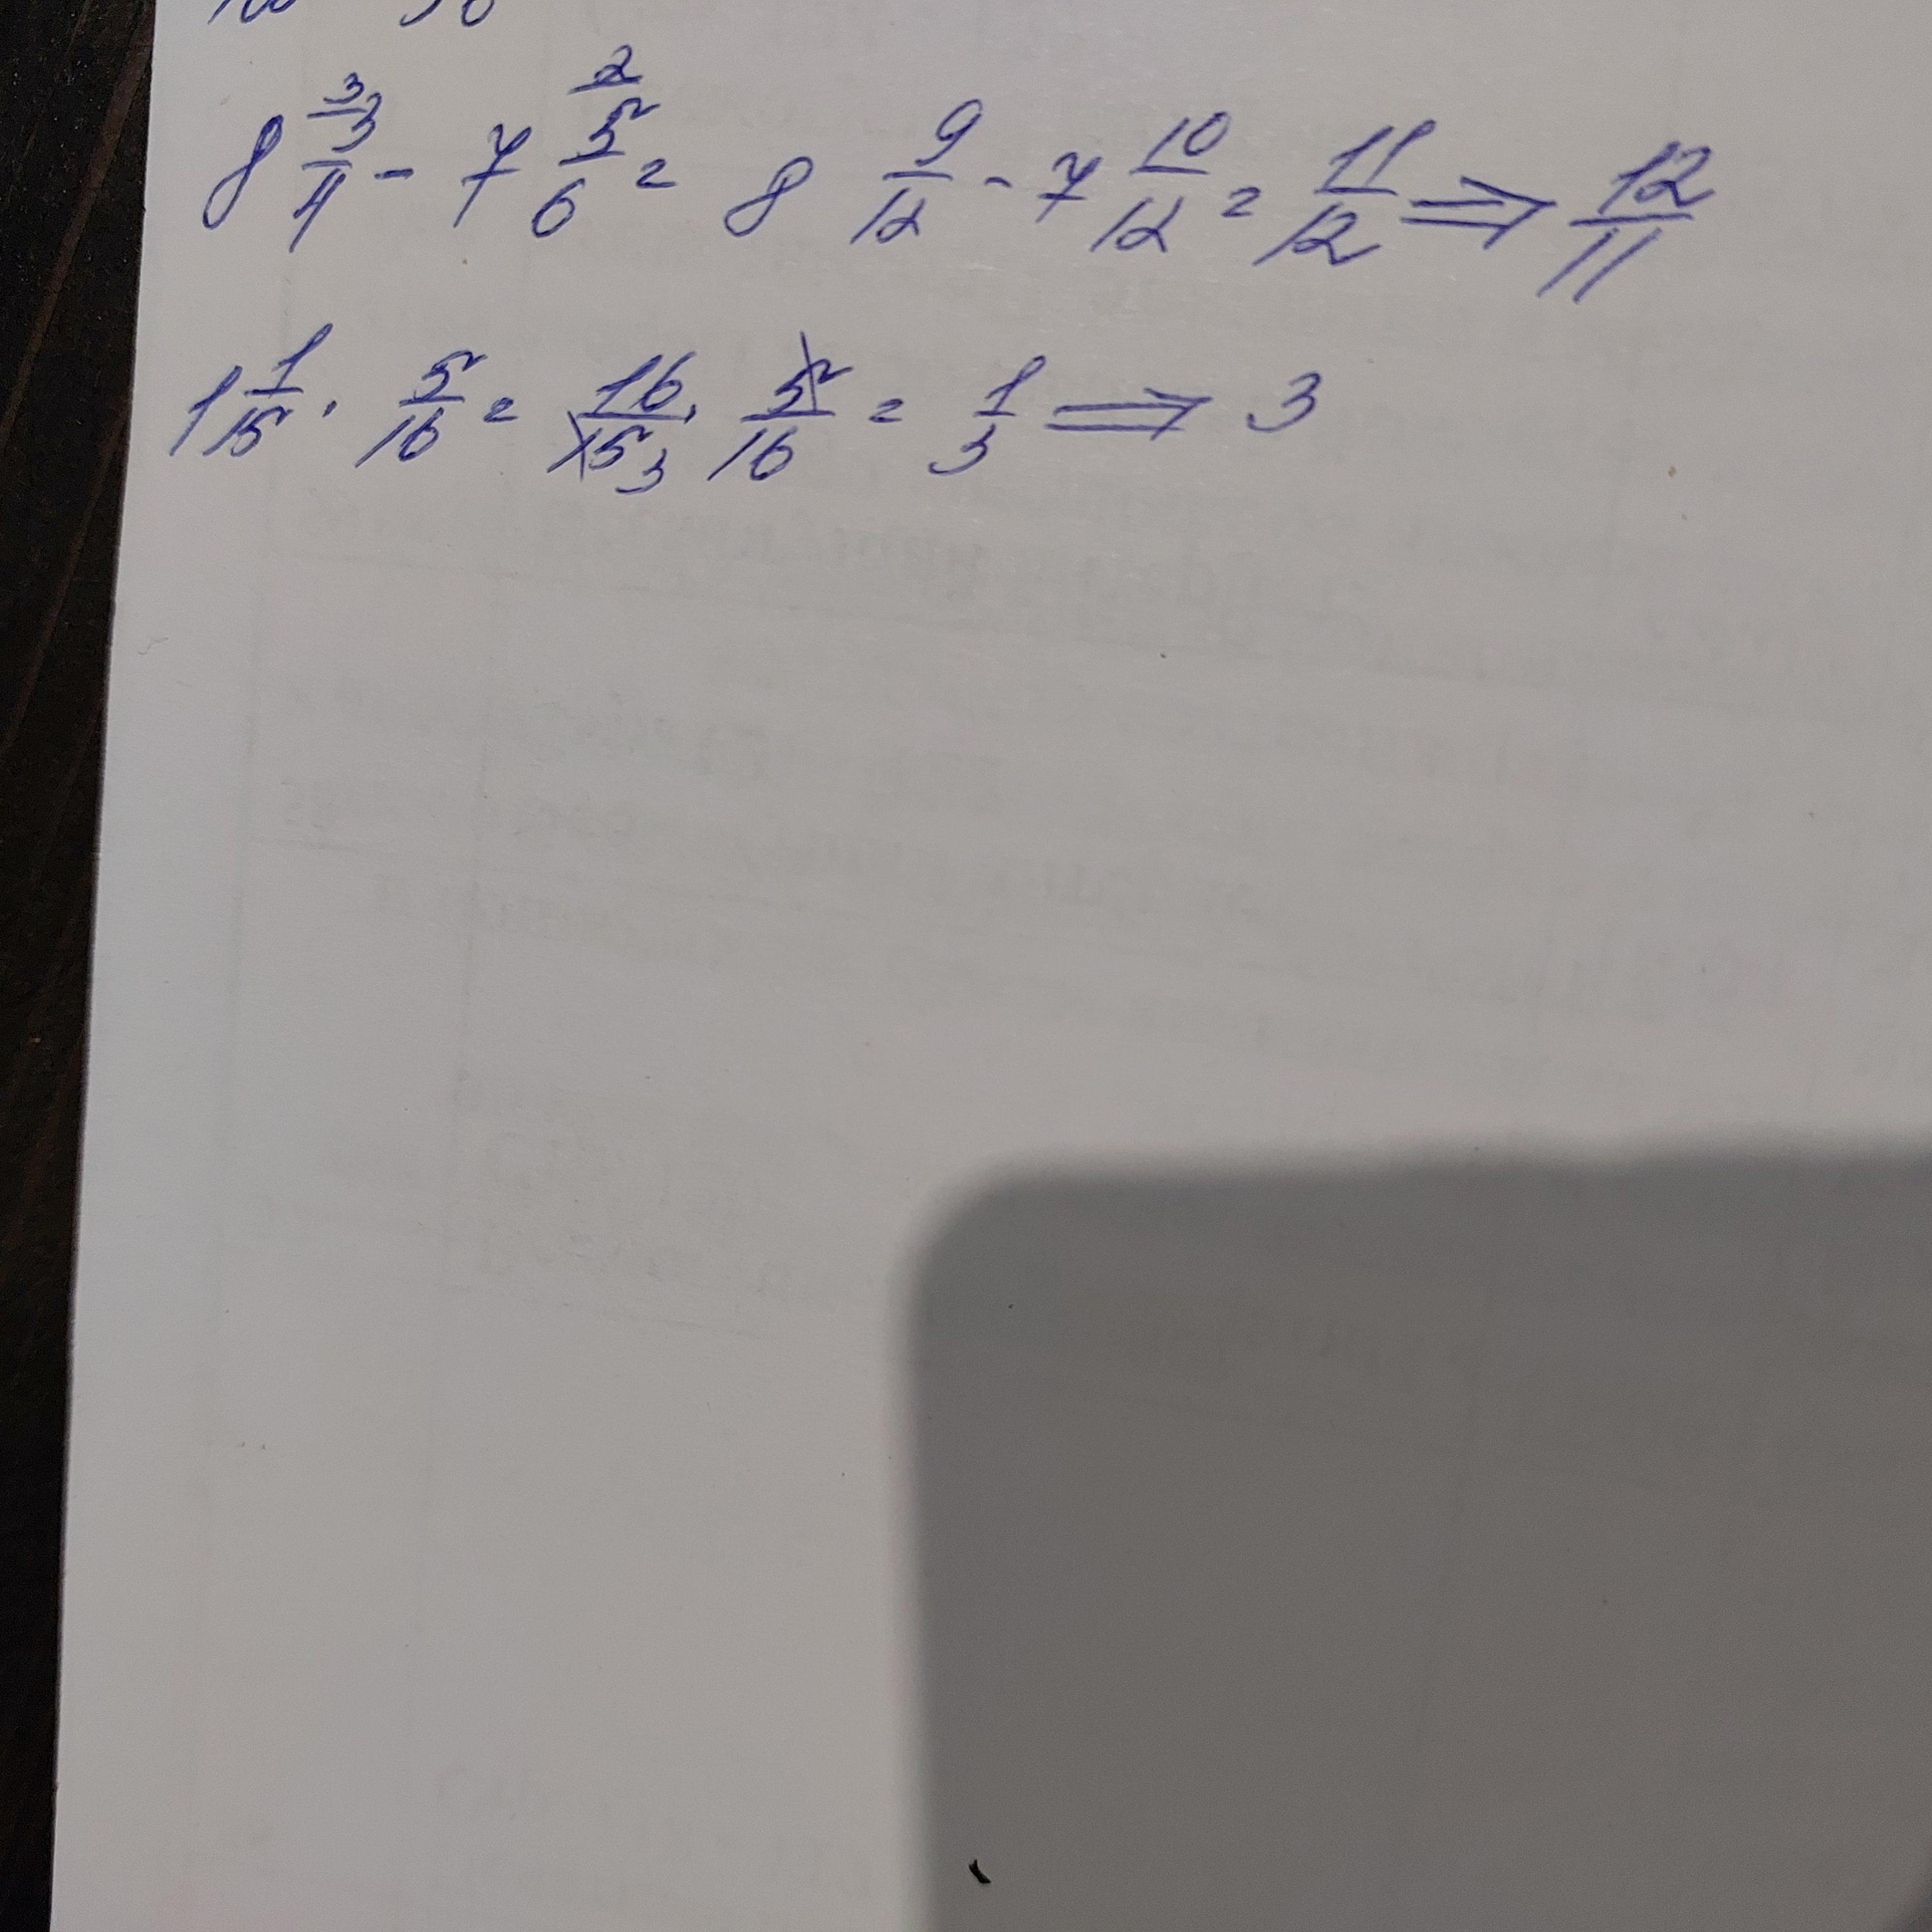 8 3/4 - 7 5/6 = 8 9/12 - 7 10/12 = 11/12 ⟹ 12/11
1 1/15 · 5/16 = 16/15 · 5/16 = 1/3 ⟹ 3